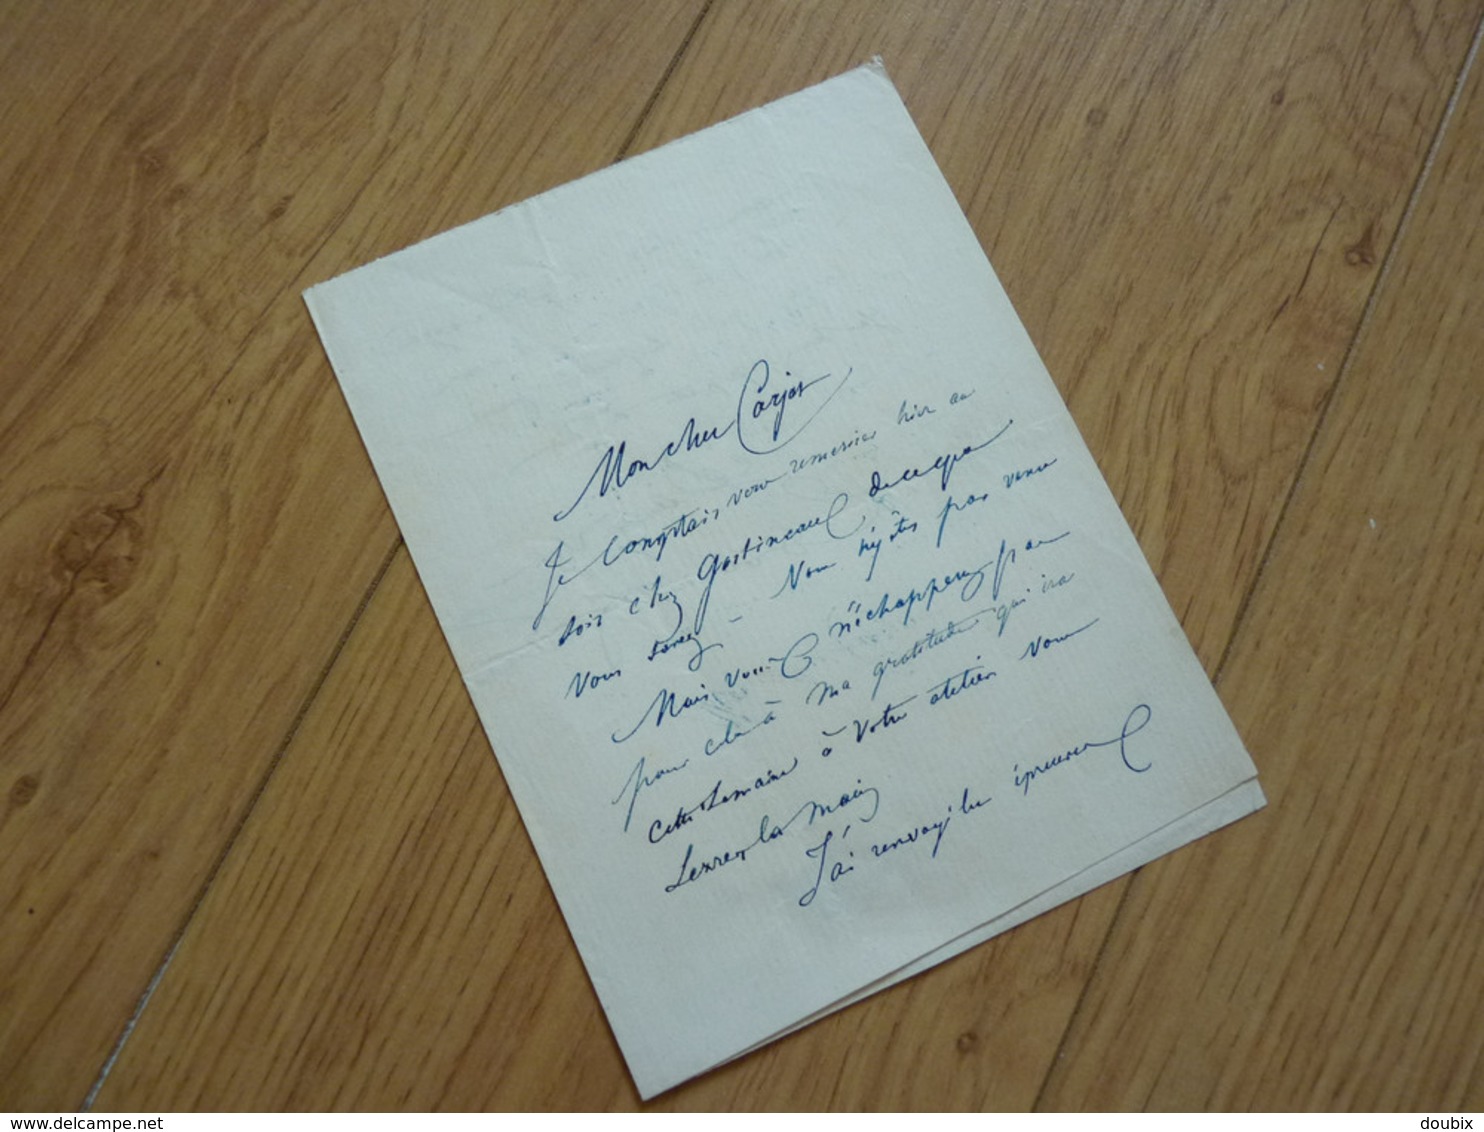 Mon cher Carjat
Je comptais vous remercier hier au
soir chez Gastineau, de ce que
vous savez – Vous n'y êtes pas venu
Mais vous n'échapperez pas
pour cela à ma gratitude qui ira
cette semaine à votre atelier vous
serrer la main
J'ai renvoyé les épreuves
delcampe.net
doubix